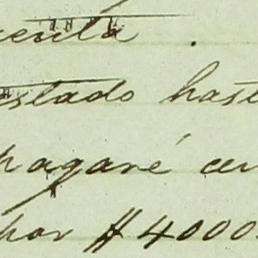 cuenta .
estado hast
pagaré en
por $ 4000